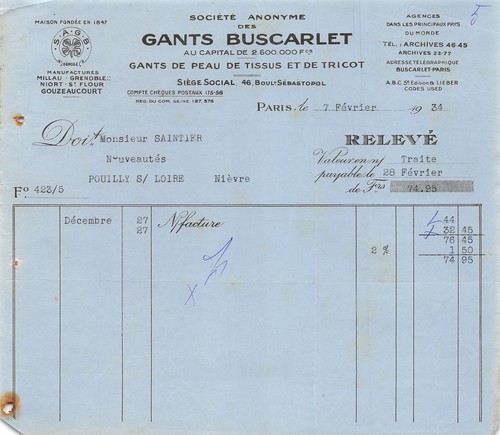 MAISON FONDÉE EN 1847
S.A.G.B.
MANUFACTURES
MILAU - GRENOBLE
NIORT-ST FLOUR
GOUZEAUCOURT
SOCIÉTÉ ANONYME
DES
GANTS BUSCARLET
AU CAPITAL DE 2.600.000 Fcs
GANTS DE PEAU DE TISSUS ET DE TRICOT
SIÈGE SOCIAL 46, BOULd SÉBASTOPOL
COMPTE CHÈQUES POSTAUX 175-56
REG. DU COM. SEINE 127.576
AGENCES
DANS LES PRINCIPAUX PAYS
DU MONDE
TÉL: ARCHIVES 46-45
ARCHIVES 22-77
ADRESSE TÉLÉGRAPHIQUE
BUSCARLET-PARIS
A.B.C. 5th Edition & LIEBER
CODES USED
5
PARIS, le 7 Février 1934
Doit Monsieur SAINTIER
Nouveautés
POUILLY S/ LOIRE Nièvre
Fo 423/5
RELEVÉ
Valeur en n/ Traite
payable le 28 Février
de Frs 74.95
Décembre 27 N/ facture 44
27 32 45
76 45
2 % 1 50
74 95